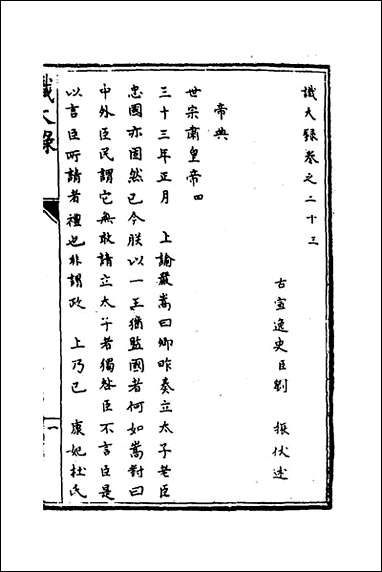 識大錄卷之二十三
古宣逸史臣劉 振伏述
帝典
世宗肅皇帝四
三十三年正月 上諭嚴嵩曰卿昨奏立太子老臣
忠國亦固然已今朕以一王獨監國者何如嵩對曰
中外臣民謂它無敢請立太子者獨咎臣不言臣是
以言臣所請者禮也非謂政 上乃已 康妃杜氏
識大錄
一